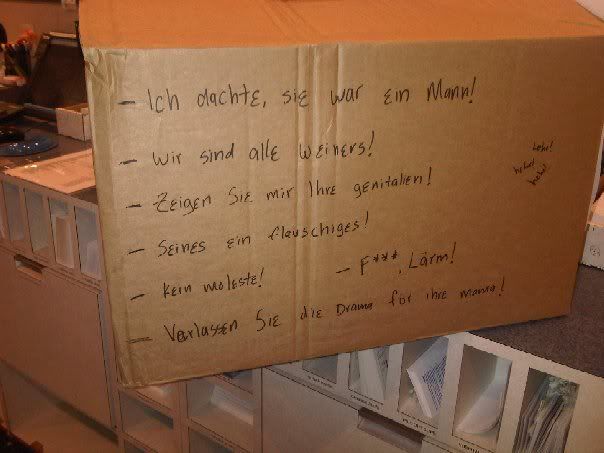 - Ich dachte, sie war ein Mann!
- Wir sind alle Weiners!
- Zeigen Sie mir Ihre genitalien!
- Seines ein flauschiges!
- Kein moleste!
- F***, Lärm!
- Verlassen Sie die Drama für ihre mama!
hehe!
hehe!
hehe!